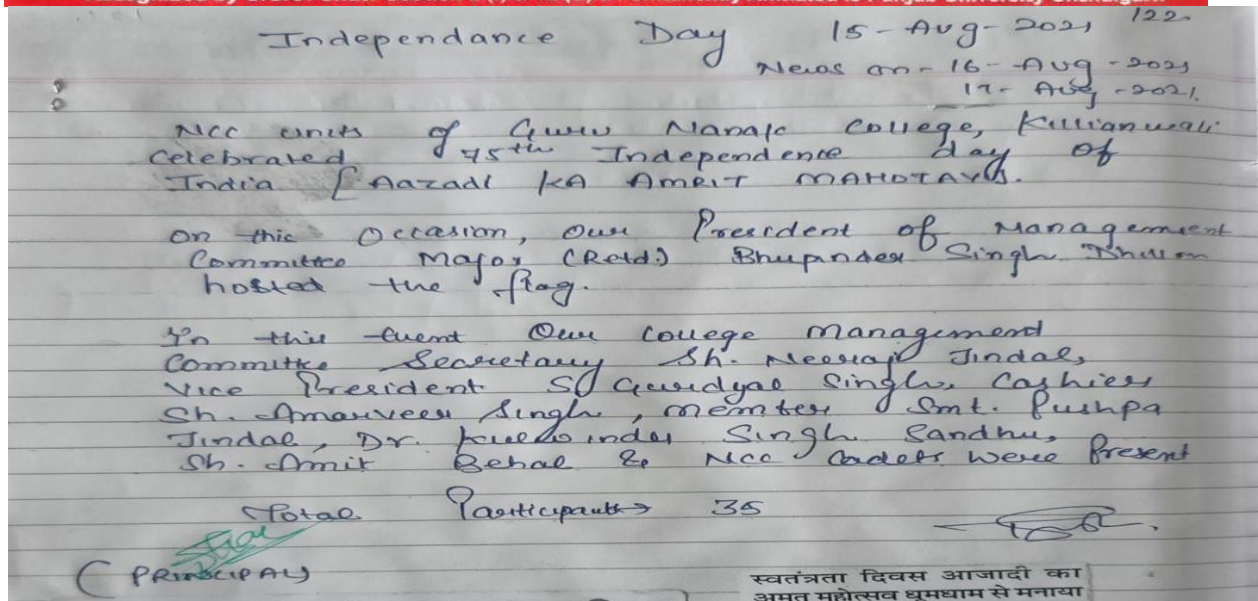 122
Independance Day 15-Aug-2021
News on - 16-Aug-2021
17-Aug-2021.
NCC units of Guru Nanak College, Killianwali
Celebrated 75th Independence day of
India [AAZADI KA AMRIT MAHOTAVS.
On this Occasion, Our President of Management
Committee Major (Retd.) Bhupinder Singh Dhillon
hosted the flag.
In this Event Our College Management
Committee Secretary Sh. Neeraj Jindal,
Vice President S. Gurdyal Singh, Cashier
Sh. Amarveer Singh, member Smt. Pushpa
Jindal, Dr. Kulwinder Singh Sandhu,
Sh. Amit Behal & NCC Cadets were Present
Total Participants → 35
(PRINCIPAL)
स्वतंत्रता दिवस आजादी का
अमृत महोत्सव धूमधाम से मनाया